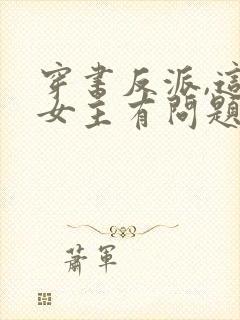 穿書反派,這
女主有問題
蕭軍